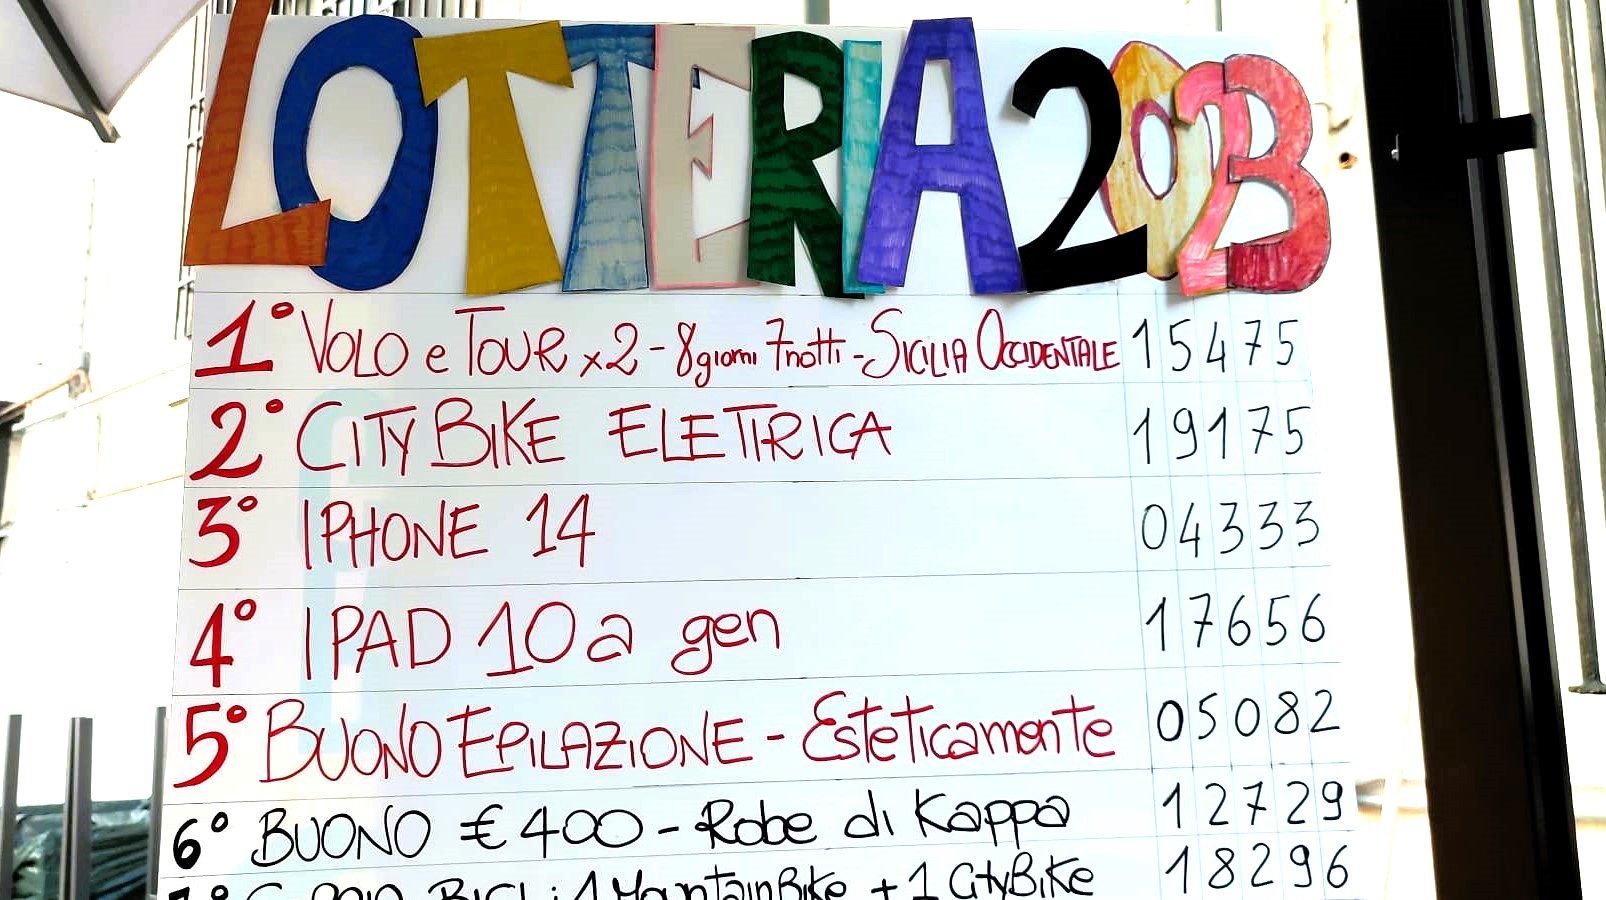 LOTTERIA 2023
1° VOLO e TOUR x2 - 8 giorni 7 notti - SICILIA OCCIDENTALE 15475
2° CITY BIKE ELETTRICA 19175
3° IPHONE 14 04333
4° IPAD 10a gen 17656
5° BUONO EPILAZIONE - Esteticamente 05082
6° BUONO € 400 - Robe di Kappa 12729
BICI: 1 MountainBike + 1 CityBike 18296